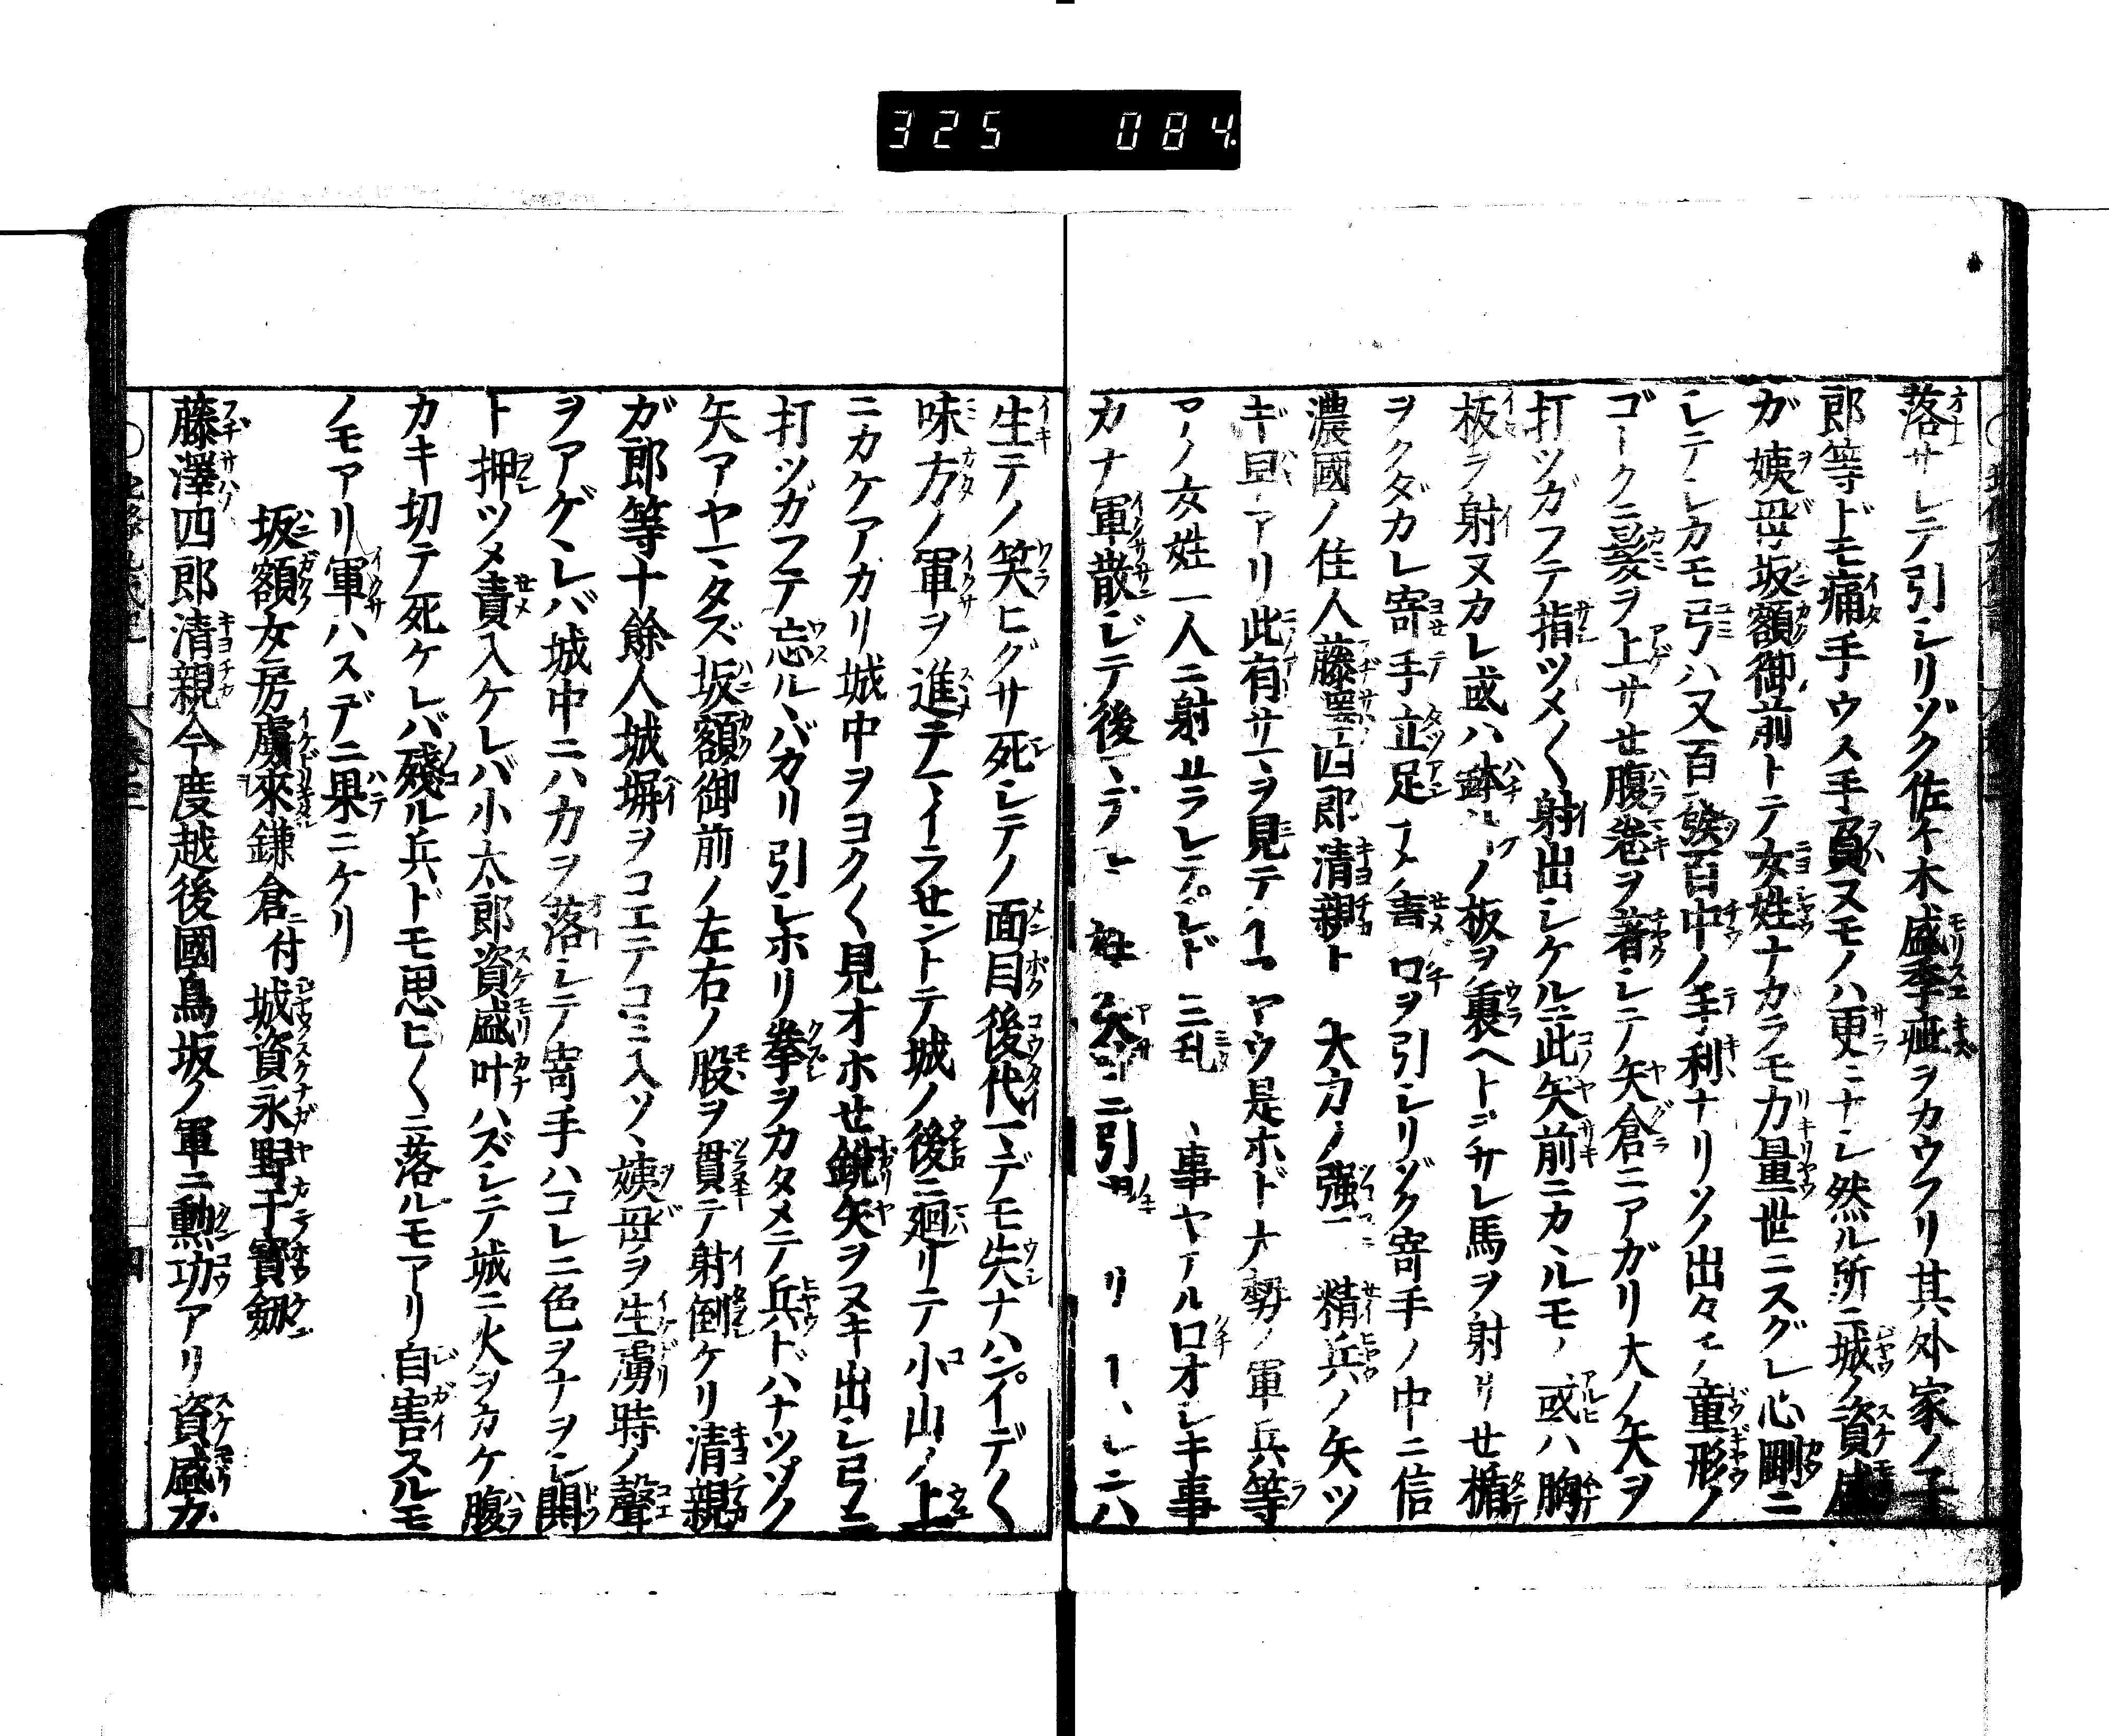 325 084.
落サレテ引シリゾク佐々木盛季疵ヲカウフリ其外家ノ子
郎等ドモ痛手ウス手負ヌモノハ更ニナシ然ル所ニ城ノ資盛
ガ姨母坂額御前トテ女姓ナカラモ力量世ニスグレ心剛ニ
シテシカモ弓ハ又百發百中ノ手利ナリソノ出々チノ童形ノ
ゴークニ髪ヲ上サセ腹卷ヲ著シテ矢倉ニアガリ大ノ矢ヲ
打ツガフテ指ツメ〱射出シケルニ此矢前ニカヽルモノ或ハ胸
板ヲ射ヌカレ或ハ鉢ノ板ヲ裏ヘトヲサレ馬ヲ射サセ楯
ヲクダカレ寄手立足 口ヲ引シリゾク寄手ノ中ニ信
濃國ノ住人藤澤四郎清親ト 大力ノ強 精兵ノ矢ツ
ギ アリ此有サマヲ見テ ヤウ是ホドナ 勢ノ軍兵等
アノ女姓一人ニ射 ラレテ 乱 事ヤアル口オシキ事
カナ軍散ジテ後 姓 ニ引
生テノ笑ヒグサ死シテノ面目後代マデモ失ナハンイデ〱
味方ノ軍ヲ進テマイラセントテ城ノ後ニ廻リテ小山ノ上
ニカケアカリ城中ヲヨク〱見オホセ鋭矢ヲスキ出シ弓ニ
打ツガフテ忘ルヽバカリ引シホリ拳ヲカタメテ兵ドハナツソノ
矢アヤマタズ坂額御前ノ左右ノ股ヲ貫テ射倒ケリ清親
ガ郎等十餘人城塀ヲコエテコミ入ソヽ姨母ヲ生虜時ノ聲
ヲアゲヽレバ城中ニハカヲ落シテノ寄手ハコレニ色ヲナヲシ閧
ト押ツメ責入ケレバ小太郎資盛叶ハズシテ城ニ火ヲカケ腹
カキ切テ死ケレバ殘ル兵ドモ思ヒ〱ニ落ルモアリ自害スルモ
ノモアリ軍ハスデニ果ニケリ
坂額女房虜來鎌倉ニ付城資永野干寳劔
藤澤四郎清親今度越後國鳥坂ノ軍ニ勲功アリ資盛カ